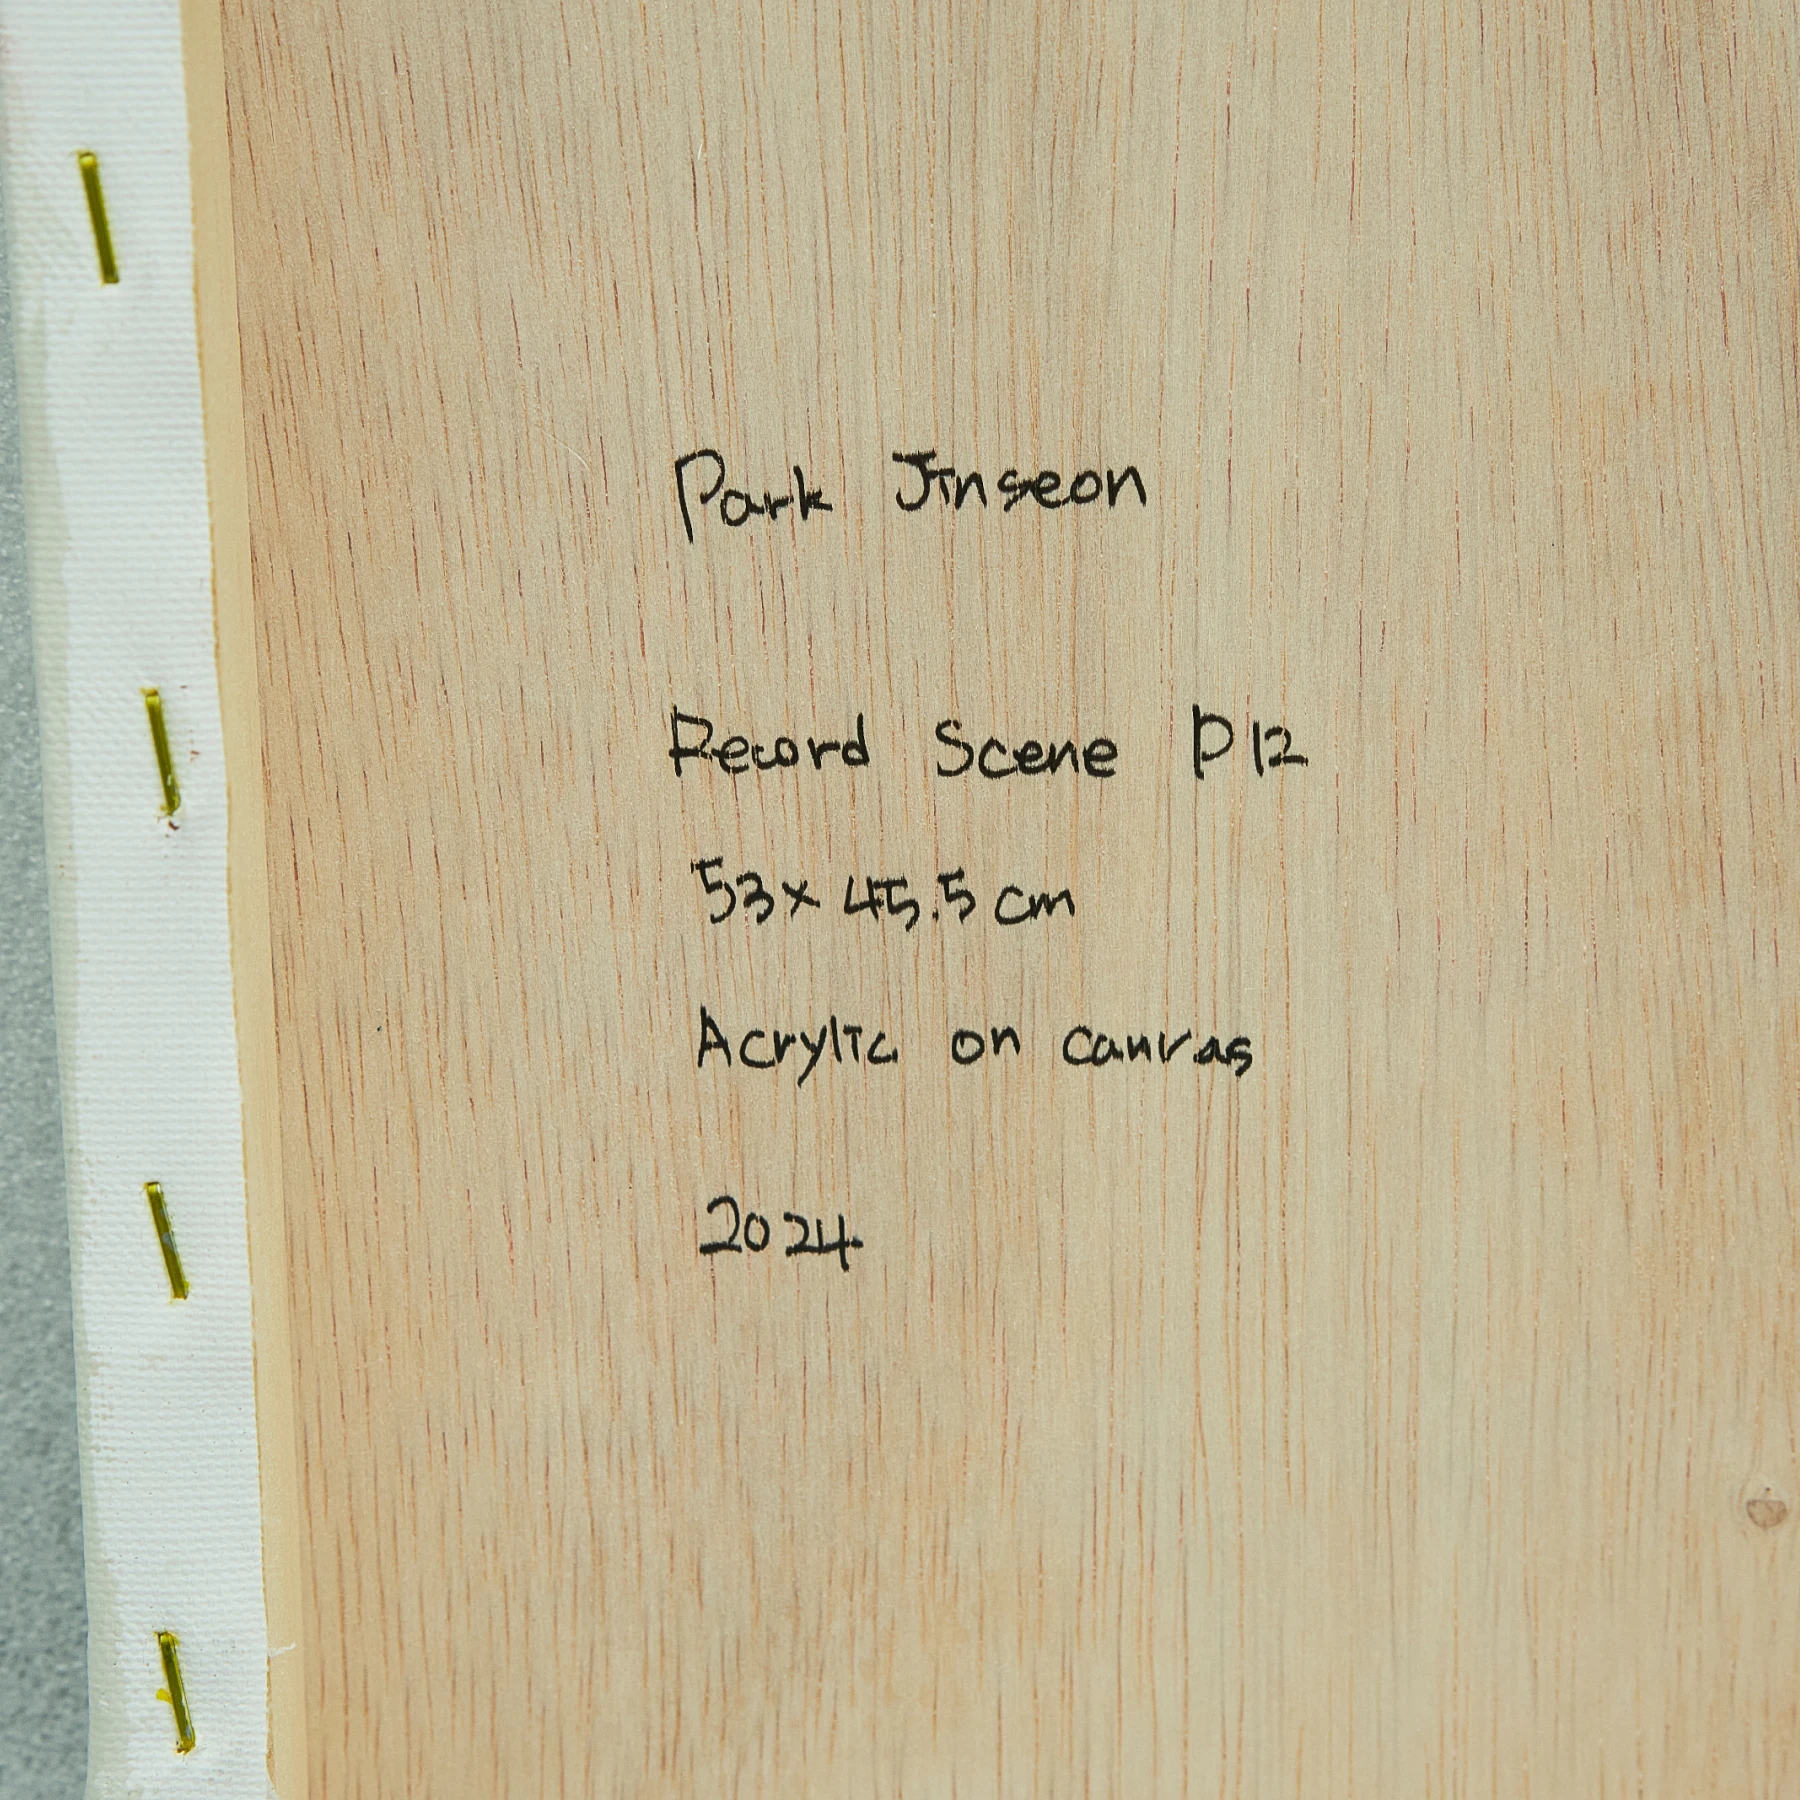 Park Jinseon
Record Scene P12
53x 45.5 cm
Acrylic on canvas
2024